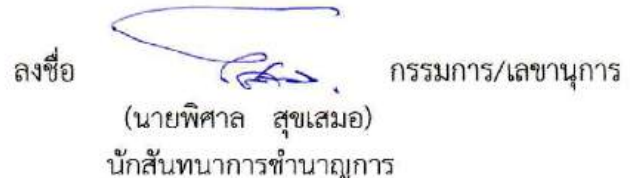 ลงชื่อ กรรมการ/เลขานุการ
(นายพิศาล สุขเสมอ)
นักสันทนาการชำนาญการ